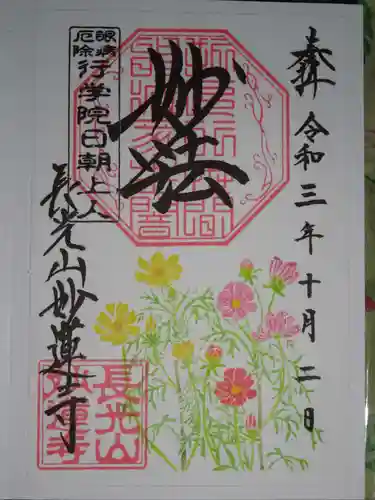 奉拝
令和三年十月二日
妙法
眼病
厄除
行学院日朝上人
長光山妙蓮寺
長光山
妙蓮寺